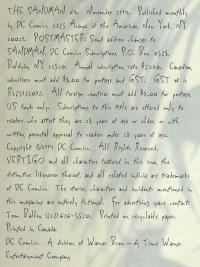 SANDMAN November Published monthly
by DC Comics, 1325 Avenue of the Americas, New York, NY
POSTMASTER: Send address changes to
SANDMAN, DC Comics Subscriptions, P.O. Box 0528,
Baldwin, NY 11520. Annual subscription rate Canadian
subscribers must add $8.00 for postage and GST. GST # is
R125921072. All foreign countries must add $8.00 for postage.
US funds only. Subscriptions to this title are offered only to
readers who attest they are 18 years of age or older, or with
written parental approval to readers under 18 years of age.
Copyright DC Comics. All Rights Reserved.
VERTIGO and all characters featured in this issue, the
distinctive likenesses thereof, and all related indicia are trademarks
of DC Comics. The stories, characters and incidents mentioned in
this magazine are entirely fictional. For advertising space contact:
Tom Ballou (212) 636-5520. Printed on recyclable paper.
Printed in Canada.
DC Comics. A division of Warner Bros.—A Time Warner
Entertainment Company